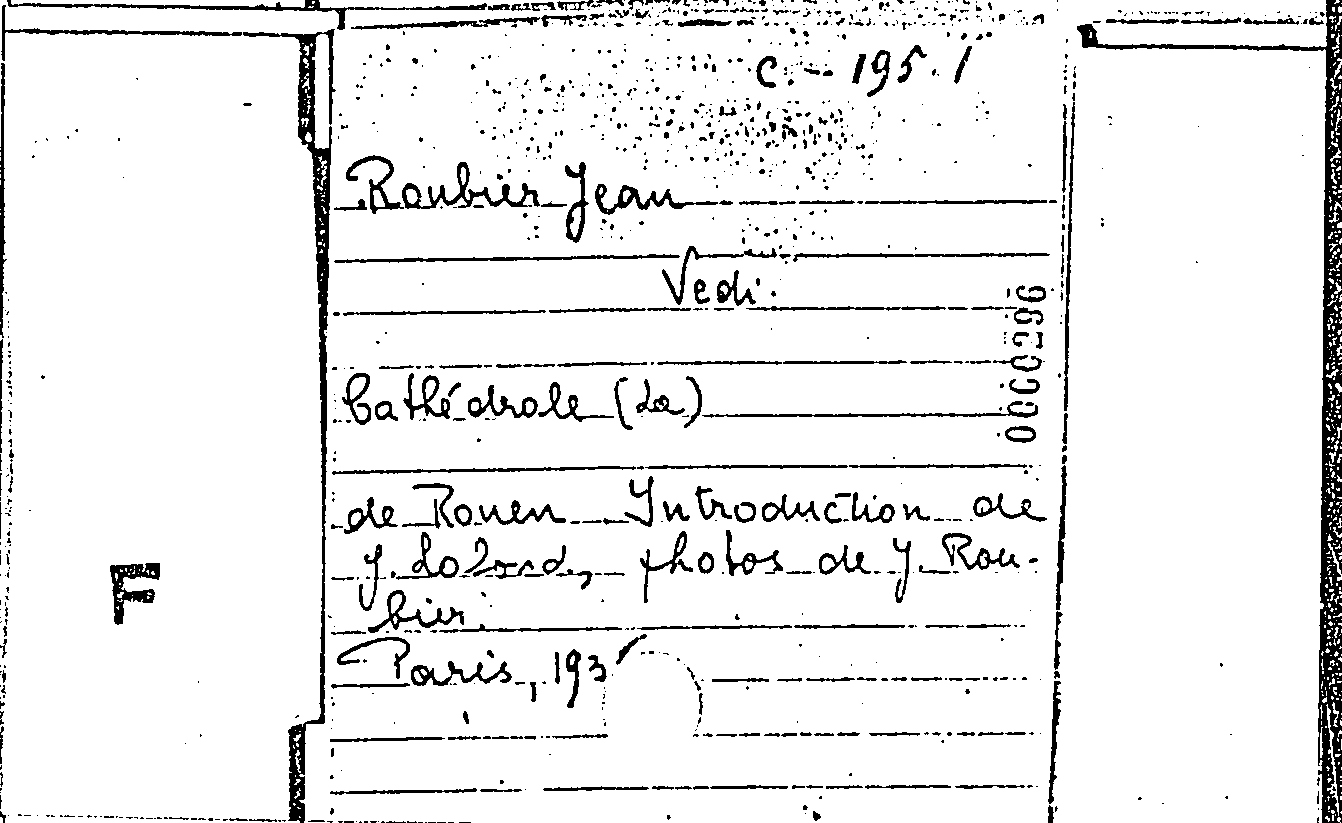 C. - 195. 1
Roubier Jean
Vedi:
0000296
Cathédrale (La)
de Rouen Introduction de
J. photos de J. Rou-
bier.
F
Paris, 193